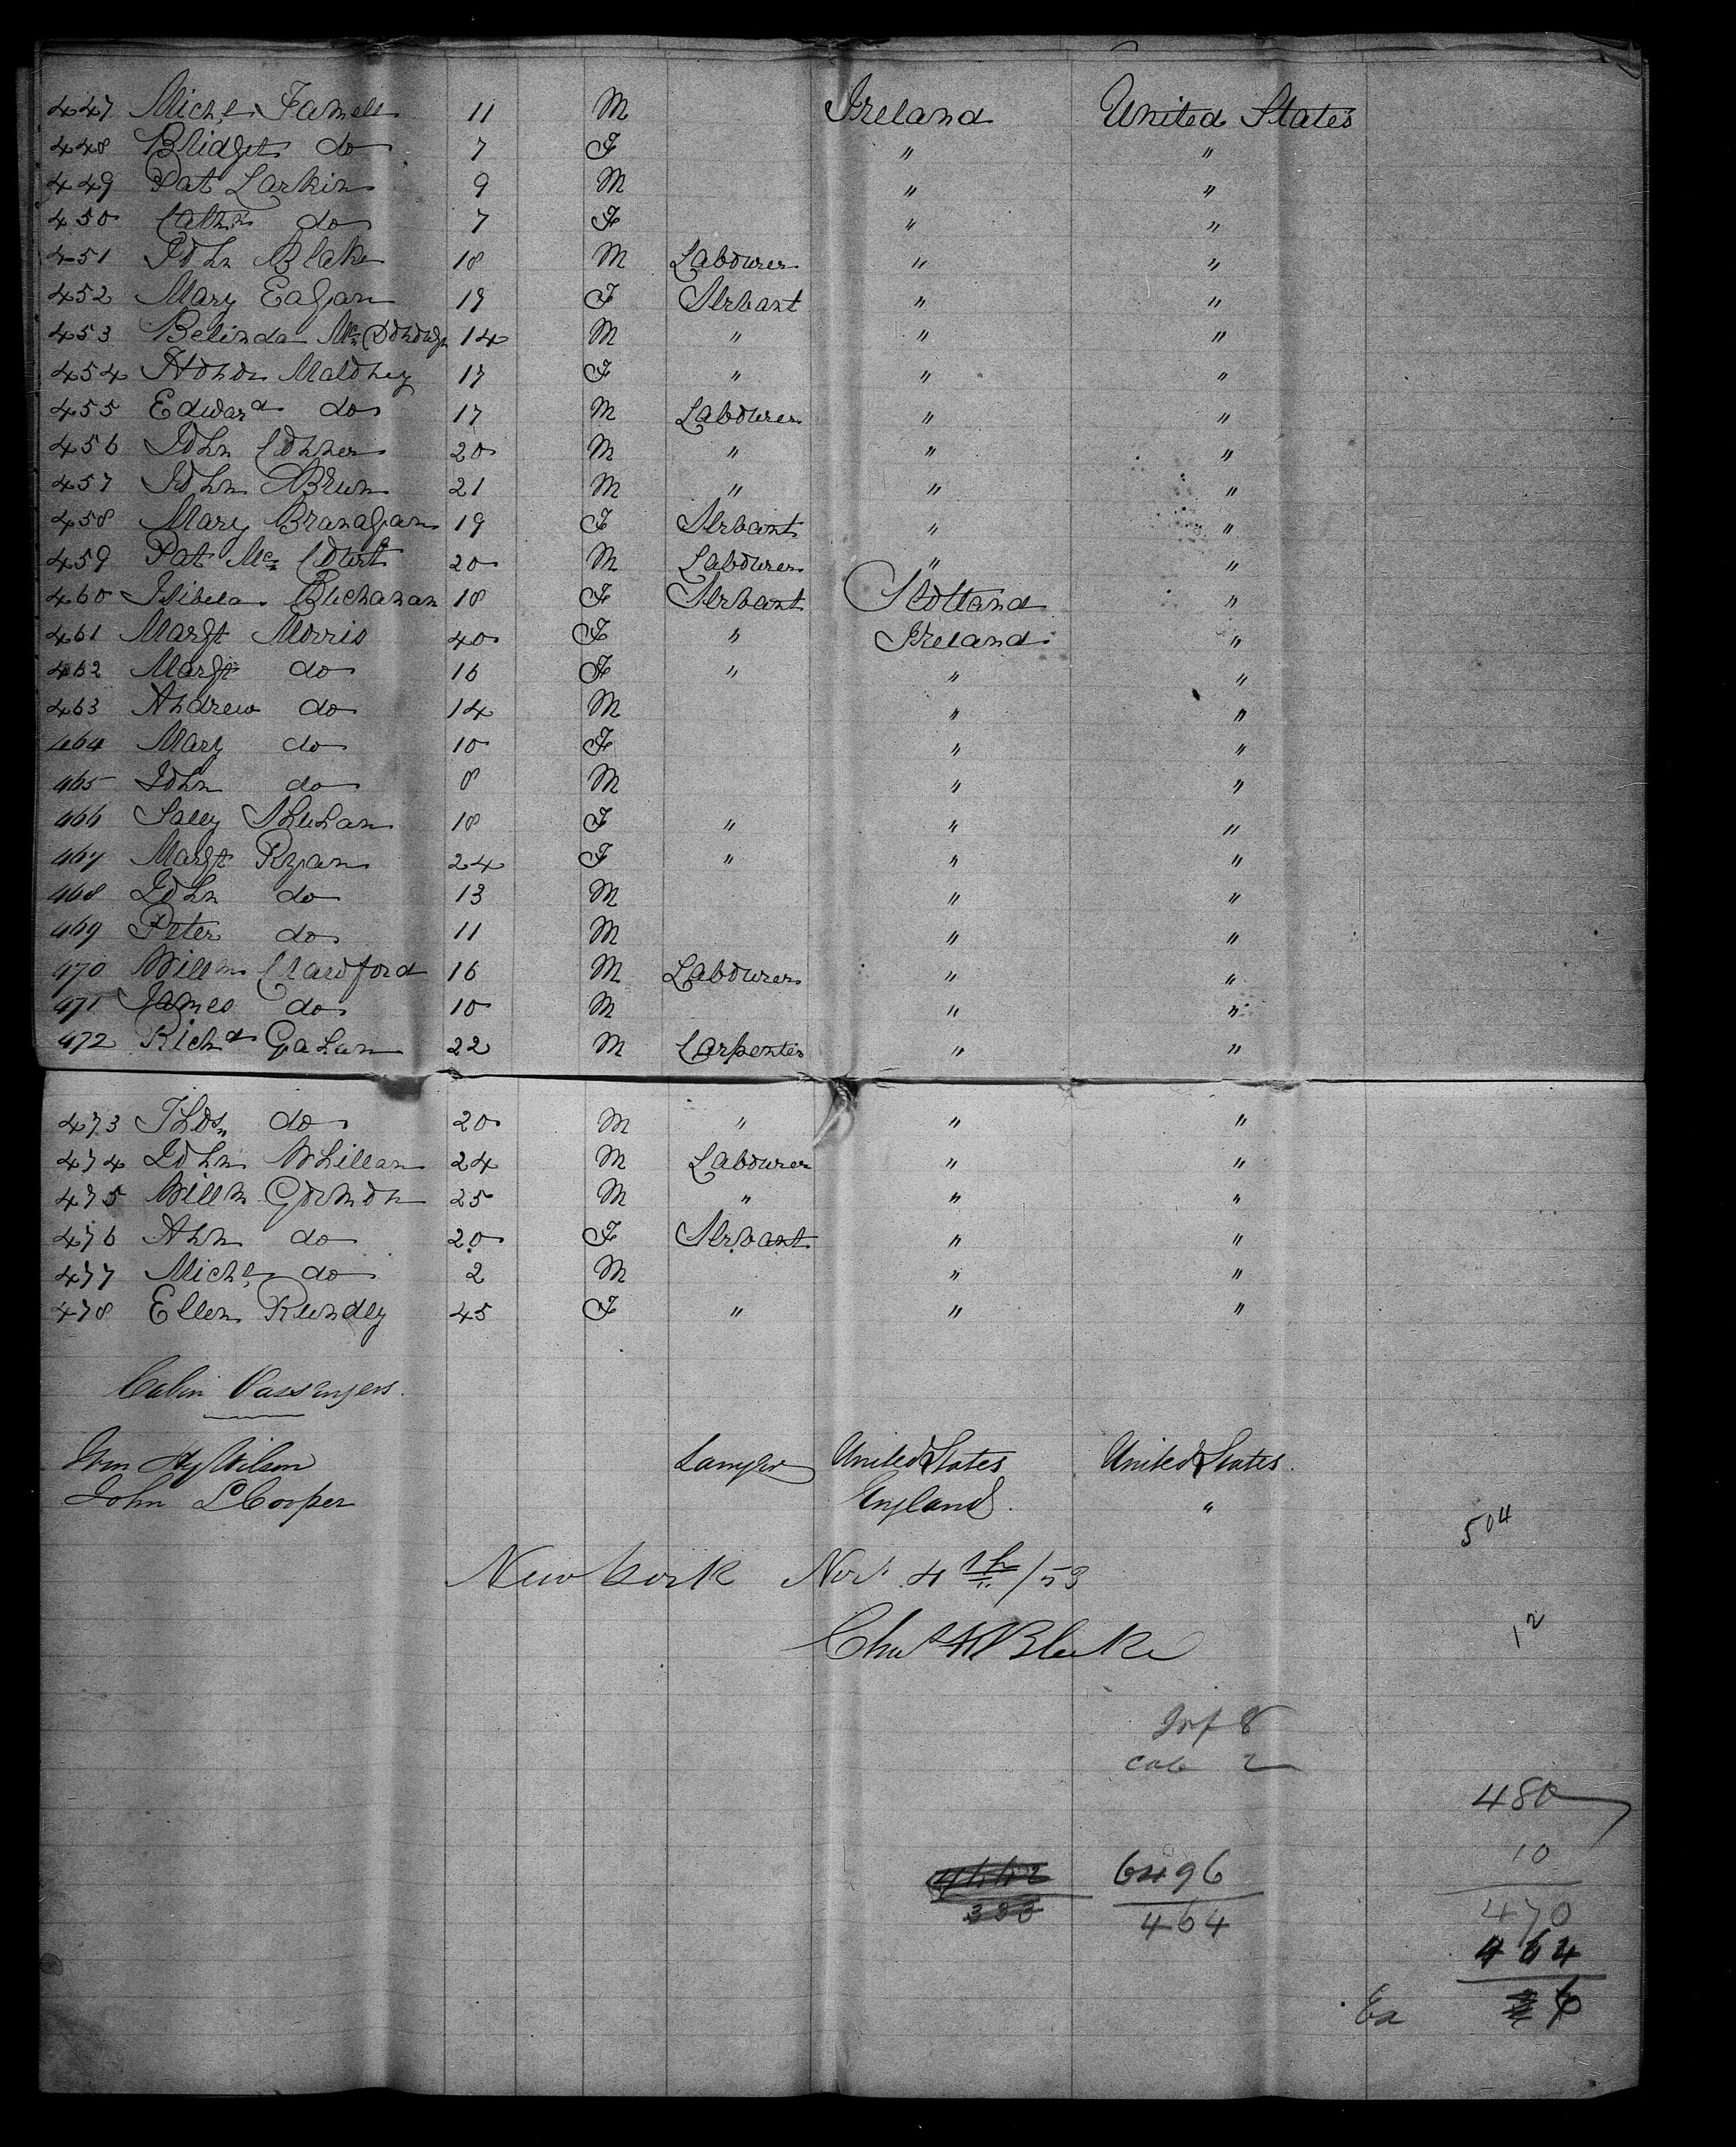 447 Michl Farrell 11 M Ireland United States
448 Bridget do 7 F " "
449 Pat Larkin 9 M " "
450 Cathn do 7 F " "
451 John Blake 18 M Labourer " "
452 Mary Eagan 19 F Servant " "
453 Belinda McDonough 14 M " " "
454 Honor Maloney 17 F " " "
455 Edward do 17 M Labourer " "
456 John Conner 20 M " " "
457 John 21 M " " "
458 Mary Branagan 19 F Servant " "
459 Pat Mc Court 20 M Labourer " "
460 Isibela Buchanan 18 F Servant Scotland "
461 Margt Morris 40 F " Ireland "
462 Margt do 16 F " " "
463 Andrew do 14 M " "
464 Mary do 10 F " "
465 John do 8 M " "
466 Sally Shehan 18 F " " "
467 Margt Ryan 24 F " " "
468 John do 13 M " "
469 Peter do 11 M " "
470 Willm Crawford 16 M Labourer " "
471 James do 10 M " "
472 Richd Gahan 22 M Carpenter " "
473 Thos do 20 M " " "
474 John Whillan 24 M Labourer " "
475 Willm Gormon 25 M " " "
476 Ann do 20 F Servant " "
477 Michl do 2 M " "
478 Ellen 45 F " " "
Cabin Passengers
Wm Hy Wilson Lawyer United States United States
John L Cooper England "
504
New York Nov 4th /53
12
Chas H Blake
Inf 8
cab 2
480
10
6496
470
464
464
Ex 6